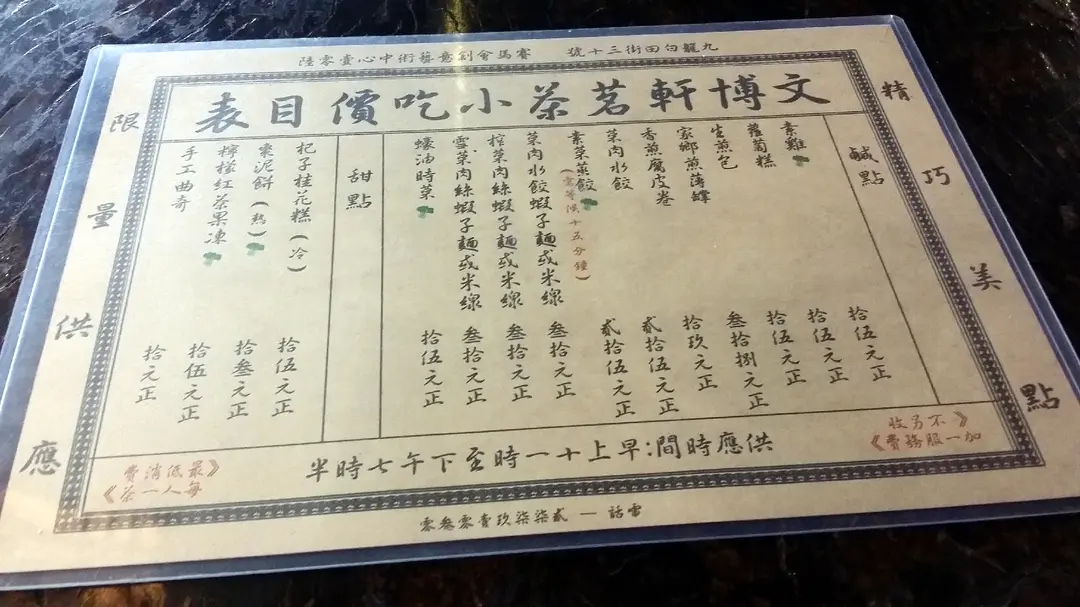 九龍白田街三十號 賽馬會創意藝術中心壹零陸
文博軒茗茶小吃價目表
精巧美點
鹹點
素雞 拾伍元正
蘿蔔糕 拾伍元正
生煎包 拾伍元正
家鄉煎薄罉 叁拾捌元正
香煎腐皮卷 拾玖元正
菜肉水餃 貳拾伍元正
素菜蒸餃(需等候十五分鐘) 貳拾伍元正
菜肉水餃蝦子麵或米線 叁拾元正
榨菜肉絲蝦子麵或米線 叁拾元正
雪菜肉絲蝦子麵或米線 叁拾元正
蠔油時菜 拾伍元正
甜點
杞子桂花糕(冷) 拾伍元正
棗泥餅(熱) 拾叁元正
檸檬紅茶果凍 拾伍元正
手工曲奇 拾元正
限量供應
《不另收
加一服務費》
供應時間:早上十一時至下午七時半
《最低消費
每人一茶》
電話 — 貳柒柒玖壹零叁零